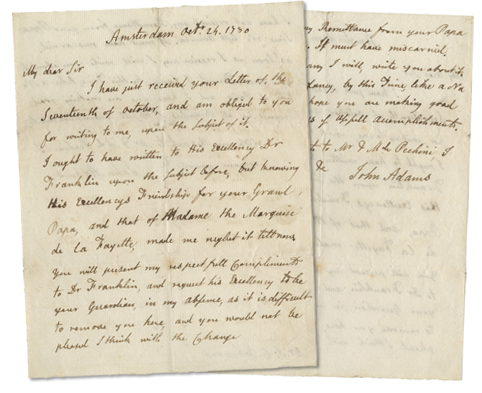 Amsterdam Oct. 24. 1780
My dear Sir
I have just received your Letter of the
Seventeenth of October, and am obliged to you
for writing to me, upon the Subject of it.
I ought to have written to His Excellency Dr
Franklin upon the Subject before, but knowing
this Excellencys Friendship for your Grand
Papa, and that of Madame the Marquise
de La Fayette, made me neglect it till now
You will present my respectfull Compliments
to Dr Franklin, and request his Excellency to be
your Guardian, in my absence, as it is difficult
to remove you here, and you would not be
pleased I think with the Change
Remittance from your Papa
It must have miscarried.
I will, write you about it.
by this Time, like a Na
hope you are making good
of Usefull Accomplishments.
to Mr & M de Pechini I
&c
John Adams